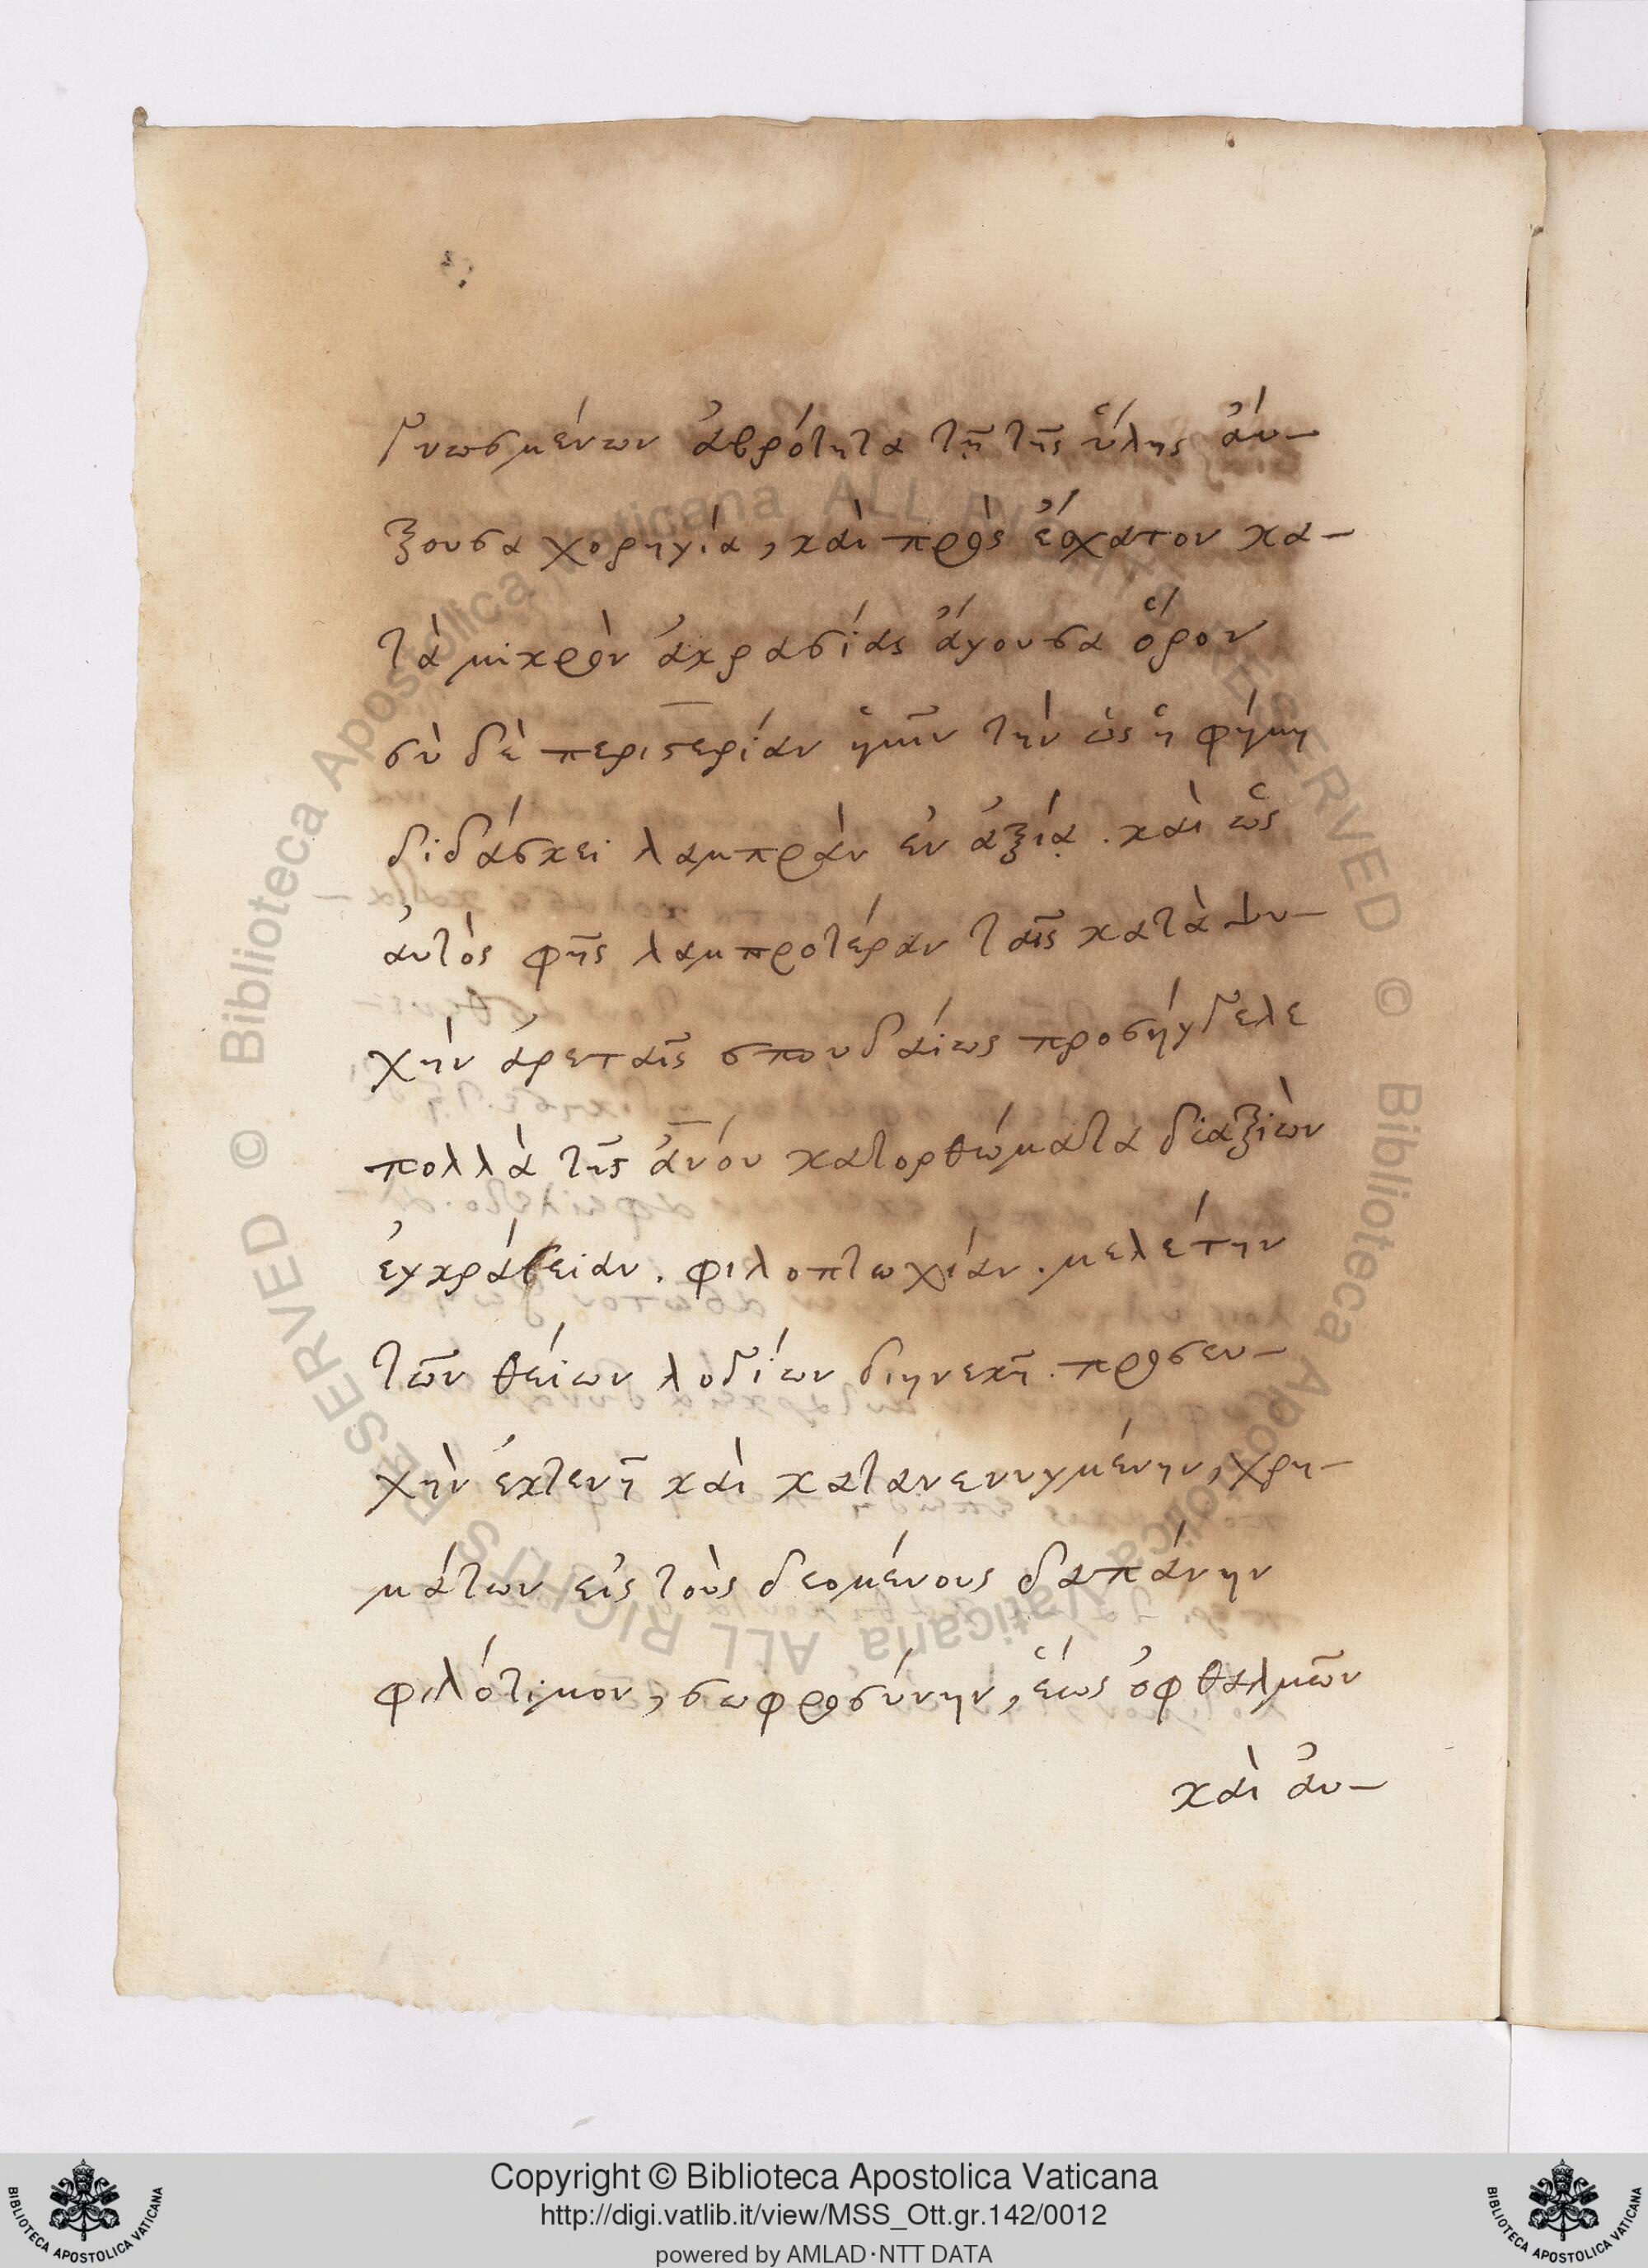 γνωσμένων ἁβρότητα τῇ τῆς ὕλης ἄυ-
ξουσα χορηγία, καὶ πρὸς ἔσχατον κα-
τὰ μικρὸν ἀκρασίας ἄγουσα ὅρον
σὺ δὲ περιστερίαν ἡμῖν τὴν ὡς ἡ φήμη
διδάσκει λαμπρὰν ἐν ἀξίᾳ. καὶ ὡς
αυτὸς φῆς λαμπροτέραν ταῖς κατὰ ψυ-
χὴν ἀρεταῖς σπουδαίως προσήγγελε
πολλὰ τῆς ἀνόυ κατορθώματα διαξιὼν
ἐγκράτειαν. φιλοπτωχίαν. μελέτην
τῶν θείων λογίων διηνεκῆ. προσευ-
χὴν ἐκτενῆ καὶ κατανενυγμένην, χρη-
μάτων εἰς τοὺς δεομένους δαπάνην
φιλότιμον, σωφροσύνην, ἕως ὀφθαλμῶν
καὶ ἀυ-
© Biblioteca Apostolica Vaticana ALL RIGHTS RESERVED
© Biblioteca Apostolica Vaticana ALL RIGHTS RESERVED
Copyright © Biblioteca Apostolica Vaticana
http://digi.vatlib.it/view/MSS_Ott.gr.142/0012
powered by AMLAD·NTT DATA
BIBLIOTECA APOSTOLICA VATICANA
BIBLIOTECA APOSTOLICA VATICANA